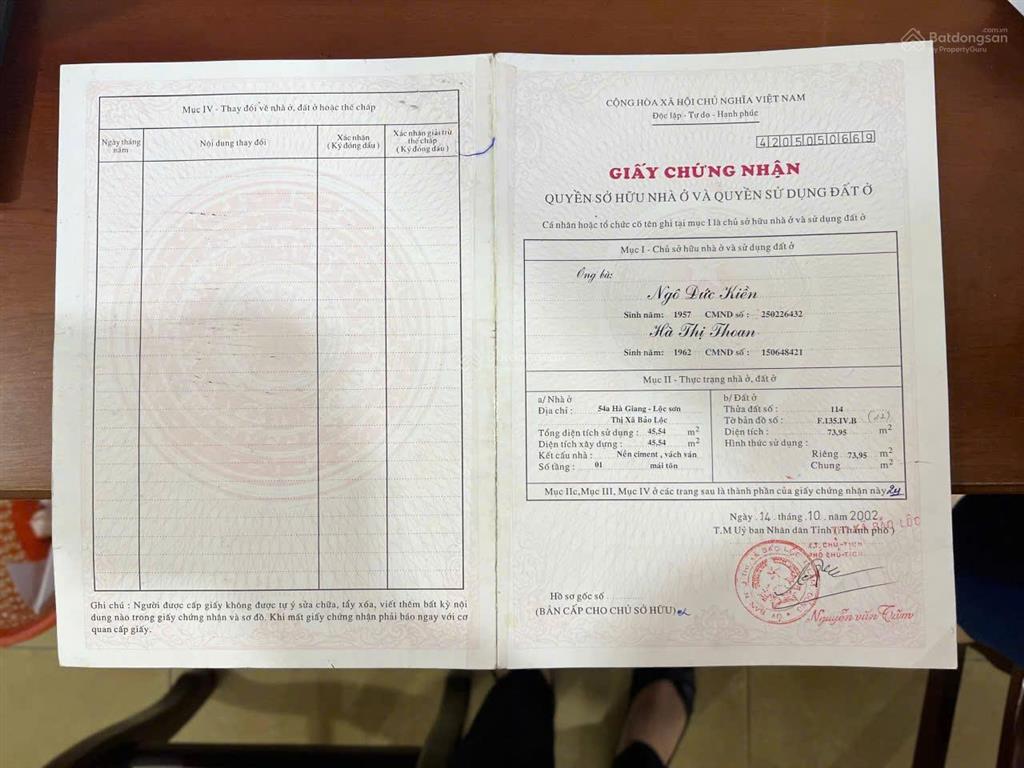 Batdongsan.com.vn
by PropertyGuru
Mục IV - Thay đổi về nhà ở, đất ở hoặc thế chấp
Ngày tháng năm
Nội dung thay đổi
Xác nhận (Ký đóng dấu)
Xác nhận giải trừ thế chấp (Ký đóng dấu)
Ghi chú : Người được cấp giấy không được tự ý sửa chữa, tẩy xóa, viết thêm bất kỳ nội
dung nào trong giấy chứng nhận và sơ đồ. Khi mất giấy chứng nhận phải báo ngay với cơ
quan cấp giấy.
CỘNG HÒA XÃ HỘI CHỦ NGHĨA VIỆT NAM
Độc lập - Tự do - Hạnh phúc
4205050669
GIẤY CHỨNG NHẬN
QUYỀN SỞ HỮU NHÀ Ở VÀ QUYỀN SỬ DỤNG ĐẤT Ở
Cá nhân hoặc tổ chức có tên ghi tại mục I là chủ sở hữu nhà ở và sử dụng đất ở
Mục I - Chủ sở hữu nhà ở và sử dụng đất ở
Ông bà:
Ngô Đức Kiền
Sinh năm: 1957 CMND số : 250226432
Hà Thị Thoan
Sinh năm: 1962 CMND số : 150648421
Mục II - Thực trạng nhà ở, đất ở
a/ Nhà ở
Địa chỉ : 54a Hà Giang - Lộc sơn
Thị Xã Bảo Lộc
Tổng diện tích sử dụng : 45,54 m2
Diện tích xây dựng : 45,54 m2
Kết cấu nhà : Nền ciment , vách ván
Số tầng : 01 mái tôn
b/ Đất ở
Thửa đất số : 114
Tờ bản đồ số : F.135.IV.B (12)
Diện tích : 73,95 m2
Hình thức sử dụng :
Riêng 73,95 m2
Chung m2
Mục IIc,Mục III, Mục IV ở các trang sau là thành phần của giấy chứng nhận này
Ngày 14 tháng 10 năm 2002
T.M Uỷ ban Nhân dân Tỉnh ( Thành phố )
THỊ XÃ BẢO LỘC
KT. CHỦ TỊCH
PHÓ CHỦ TỊCH
Hồ sơ gốc số
(BẢN CẤP CHO CHỦ SỞ HỮU)
Nguyễn văn Tẩm